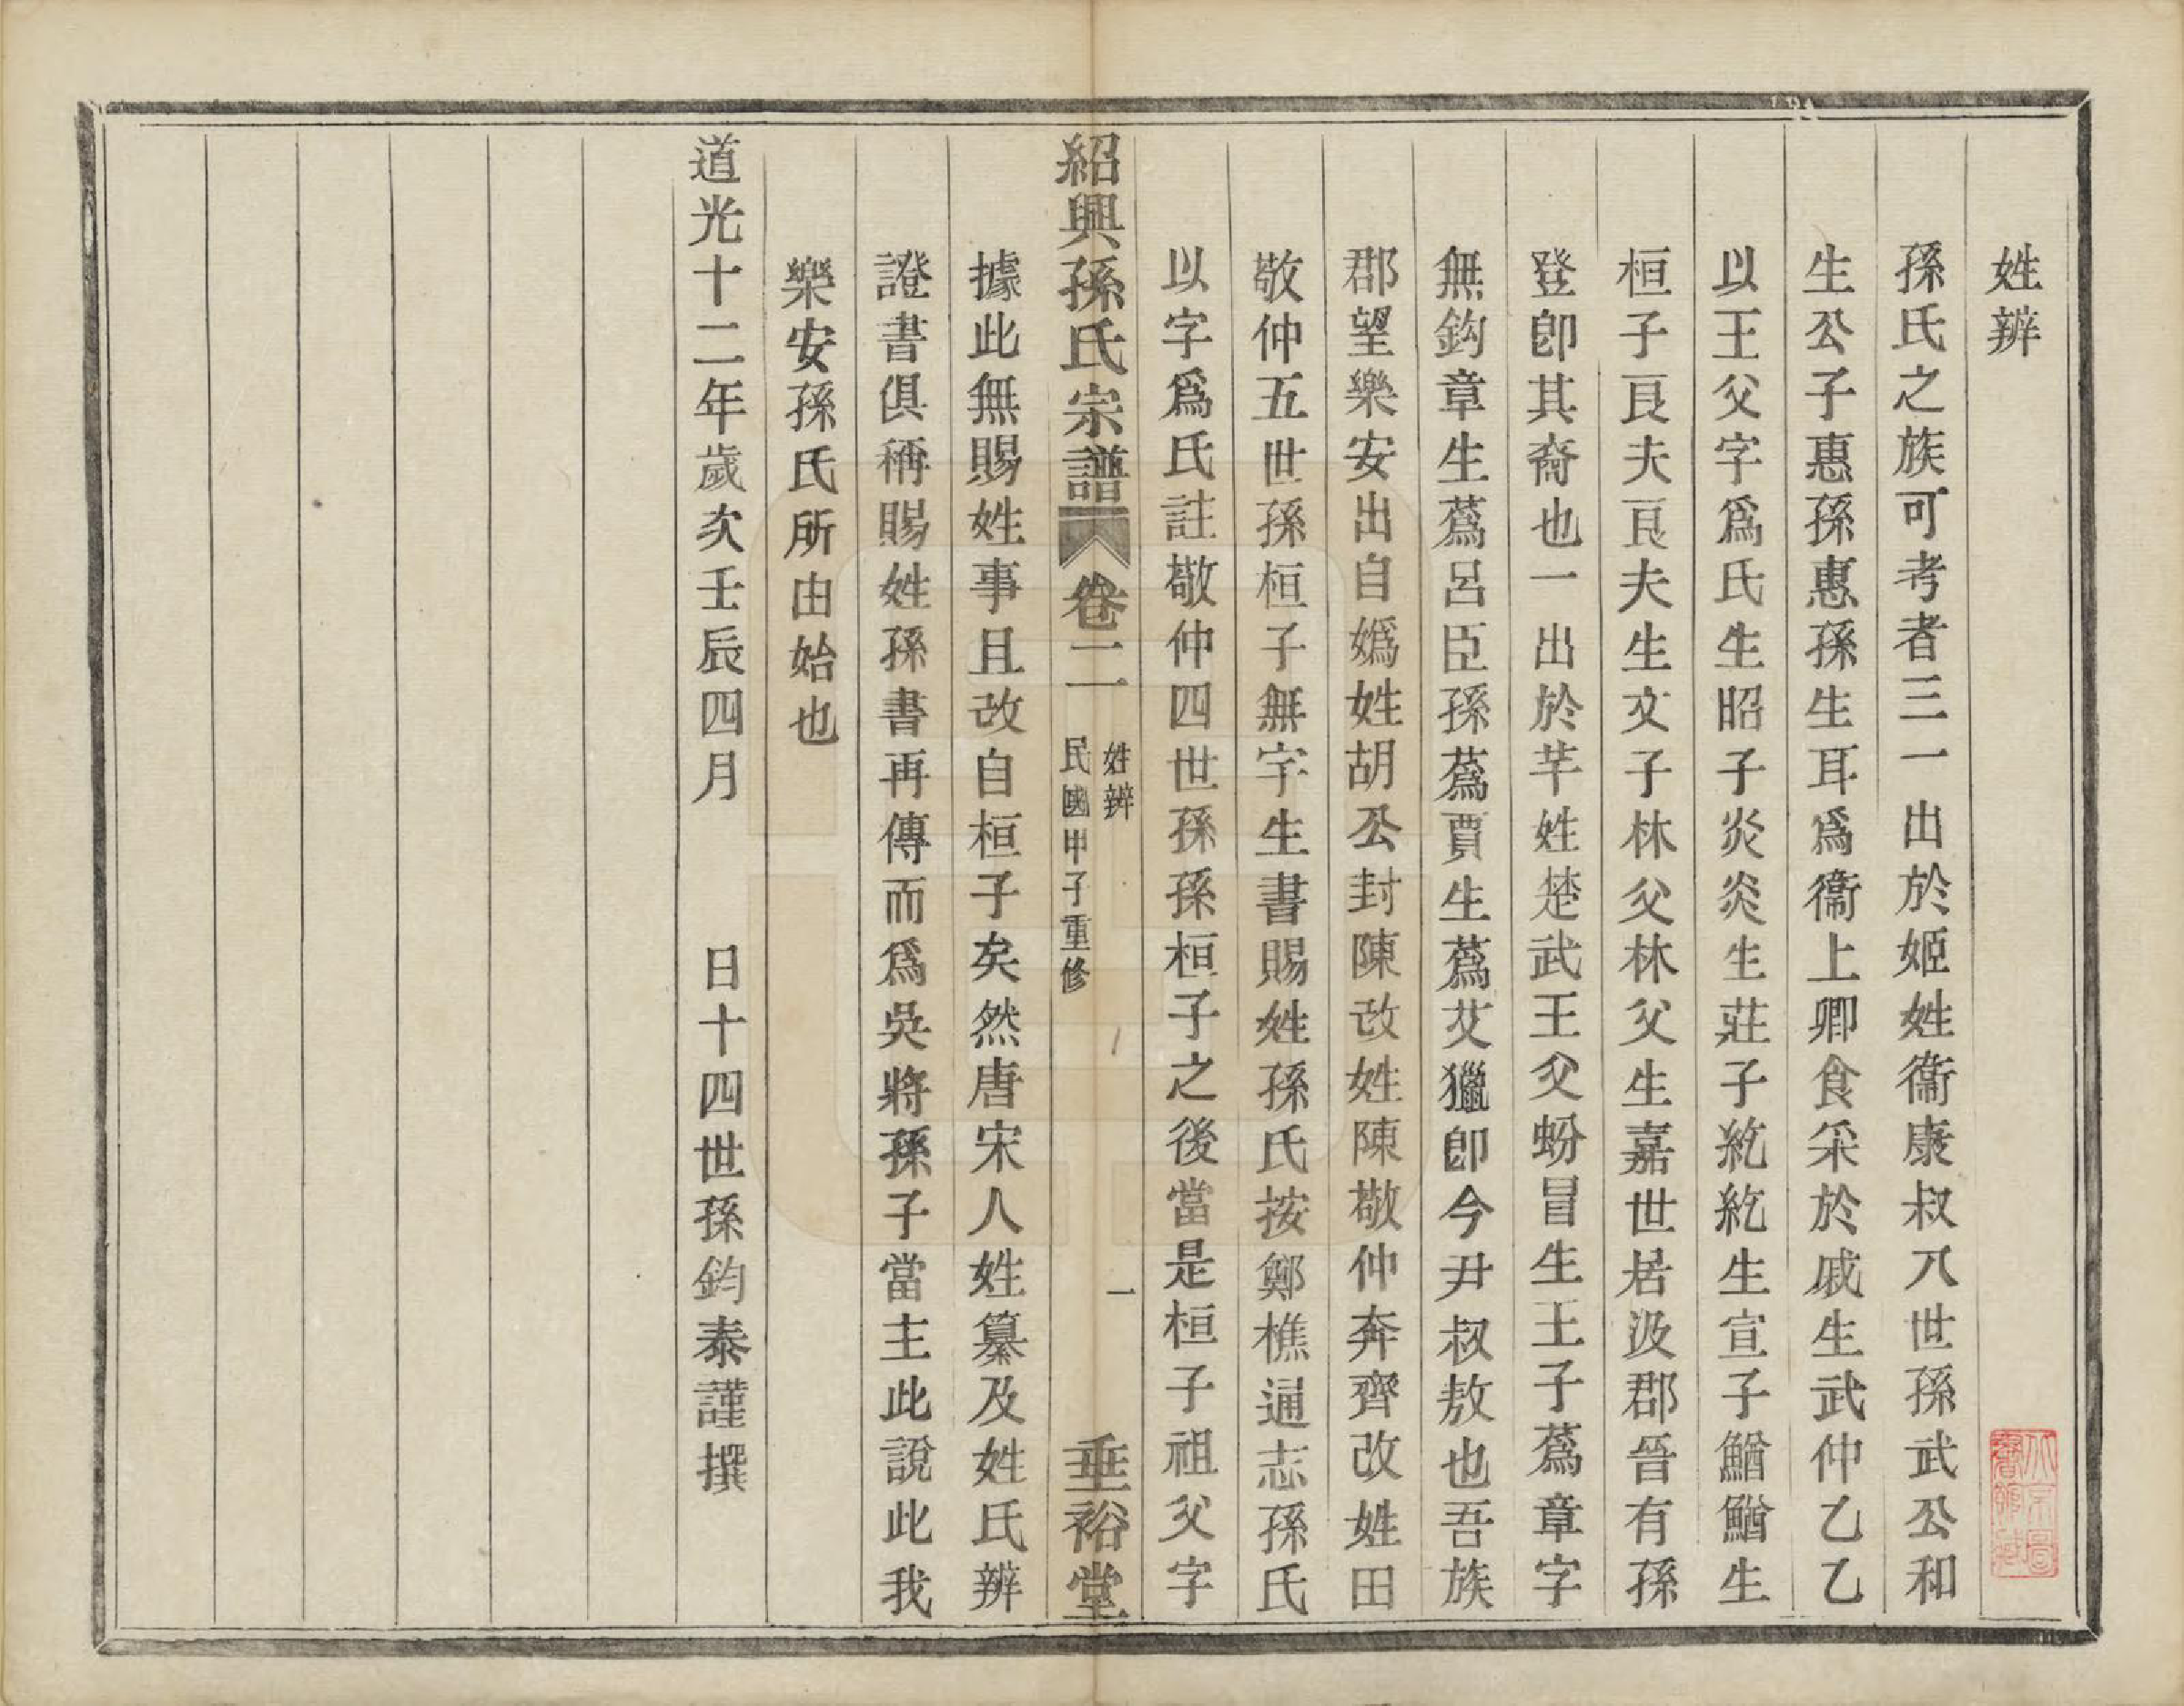 姓辨
孫氏之族可考者三一出於姬姓衞康叔八世孫武公和
生公子惠孫惠孫生耳爲衞上卿食采於戚生武仲乙乙
以王父字爲氏生昭子炎炎生莊子紇紇生宣子鰌鰌生
桓子良夫良夫生文子林父林父生嘉世居汲郡晉有孫
登卽其裔也一出於芊姓楚武王父蚡冒生王子蔿章字
無鈎章生蔿呂臣孫蔿賈生蔿艾獵卽今尹叔敖也吾族
郡望樂安出自嬀姓胡公封陳改姓陳敬仲奔齊改姓田
敬仲五世孫桓子無宇生書賜姓孫氏按鄭樵通志孫氏
以字爲氏註敬仲四世孫孫桓子之後當是桓子祖父字
紹興孫氏宗譜 卷二 姓辨 民國甲子重修 一 垂裕堂
據此無賜姓事且改自桓子矣然唐宋人姓纂及姓氏辨
證書俱稱賜姓孫書再傳而爲吳將孫子當主此說此我
樂安孫氏所由始也
道光十二年歲次壬辰四月 日十四世孫鈞泰謹撰